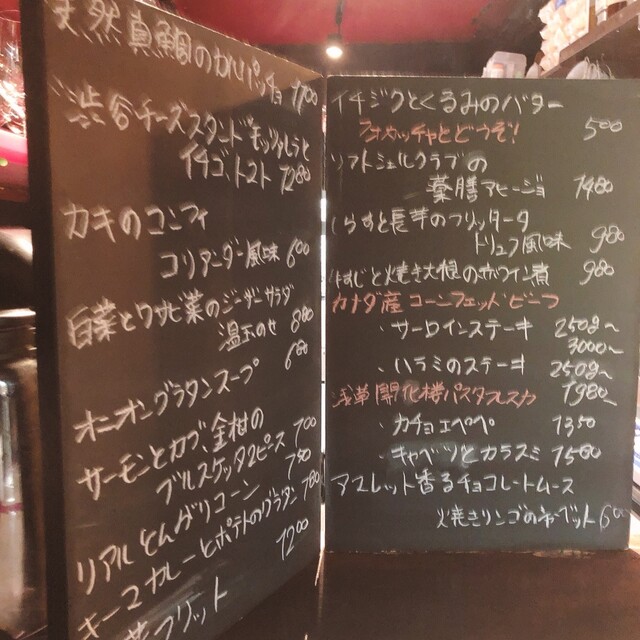 天然真鯛のカルパッチョ 1100
渋谷チーズスタンドモッツァレラと
イチゴ、トマト 1280
カキのコンフィ
コリアンダー風味 600
白菜とワサビ菜のシーザーサラダ
温玉のせ 880
オニオングラタンスープ 680
サーモンとカブ、金柑の
ブルスケッタ2ピース 700
リアルとんがりコーン 750
キーマカレーとポテトのグラタン 780
フリット 1200
イチジクとくるみのバター
フォカッチャとどうぞ! 500
ソフトシェルクラブの
薬膳アヒージョ 1480
しらすと長芋のフリッタータ
トリュフ風味 980
牛すじと焼き大根の赤ワイン煮 980
カナダ産コーンフェッドビーフ
・サーロインステーキ 250g〜
3000〜
・ハラミのステーキ 250g〜
1980〜
浅草開化楼パスタフレスカ
・カチョエペペ 1350
・キャベツとカラスミ 1500
アマレット香るチョコレートムース
焼きリンゴのソルベット 600